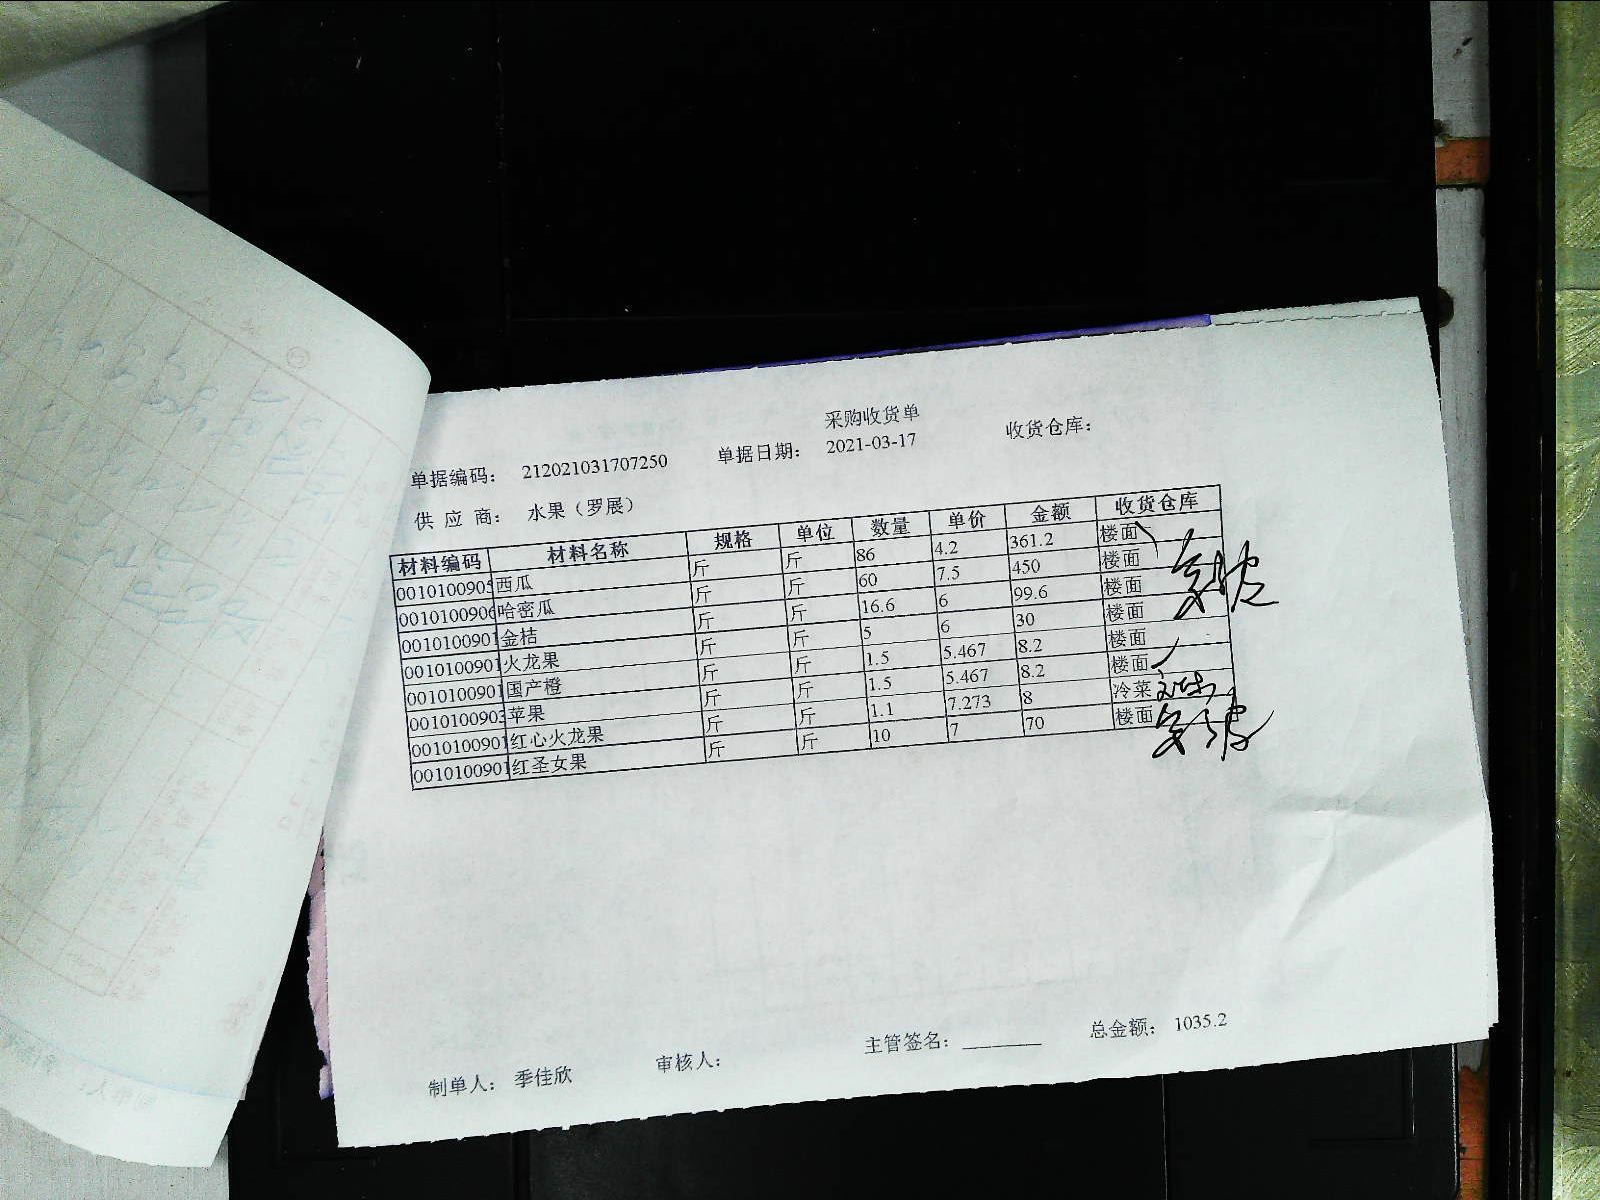 采购收货单
单据编码： 212021031707250 单据日期： 2021-03-17 收货仓库：
供 应 商： 水果（罗展）
材料编码 材料名称 规格 单位 数量 单价 金额 收货仓库
0010100905 西瓜 斤 斤 86 4.2 361.2 楼面
0010100906 哈密瓜 斤 斤 60 7.5 450 楼面
0010100901 金桔 斤 斤 16.6 6 99.6 楼面
0010100901 火龙果 斤 斤 5 6 30 楼面
0010100901 国产橙 斤 斤 1.5 5.467 8.2 楼面
0010100903 苹果 斤 斤 1.5 5.467 8.2 楼面
0010100901 红心火龙果 斤 斤 1.1 7.273 8 冷菜
0010100901 红圣女果 斤 斤 10 7 70 楼面
制单人： 季佳欣 审核人： 主管签名： 总金额： 1035.2